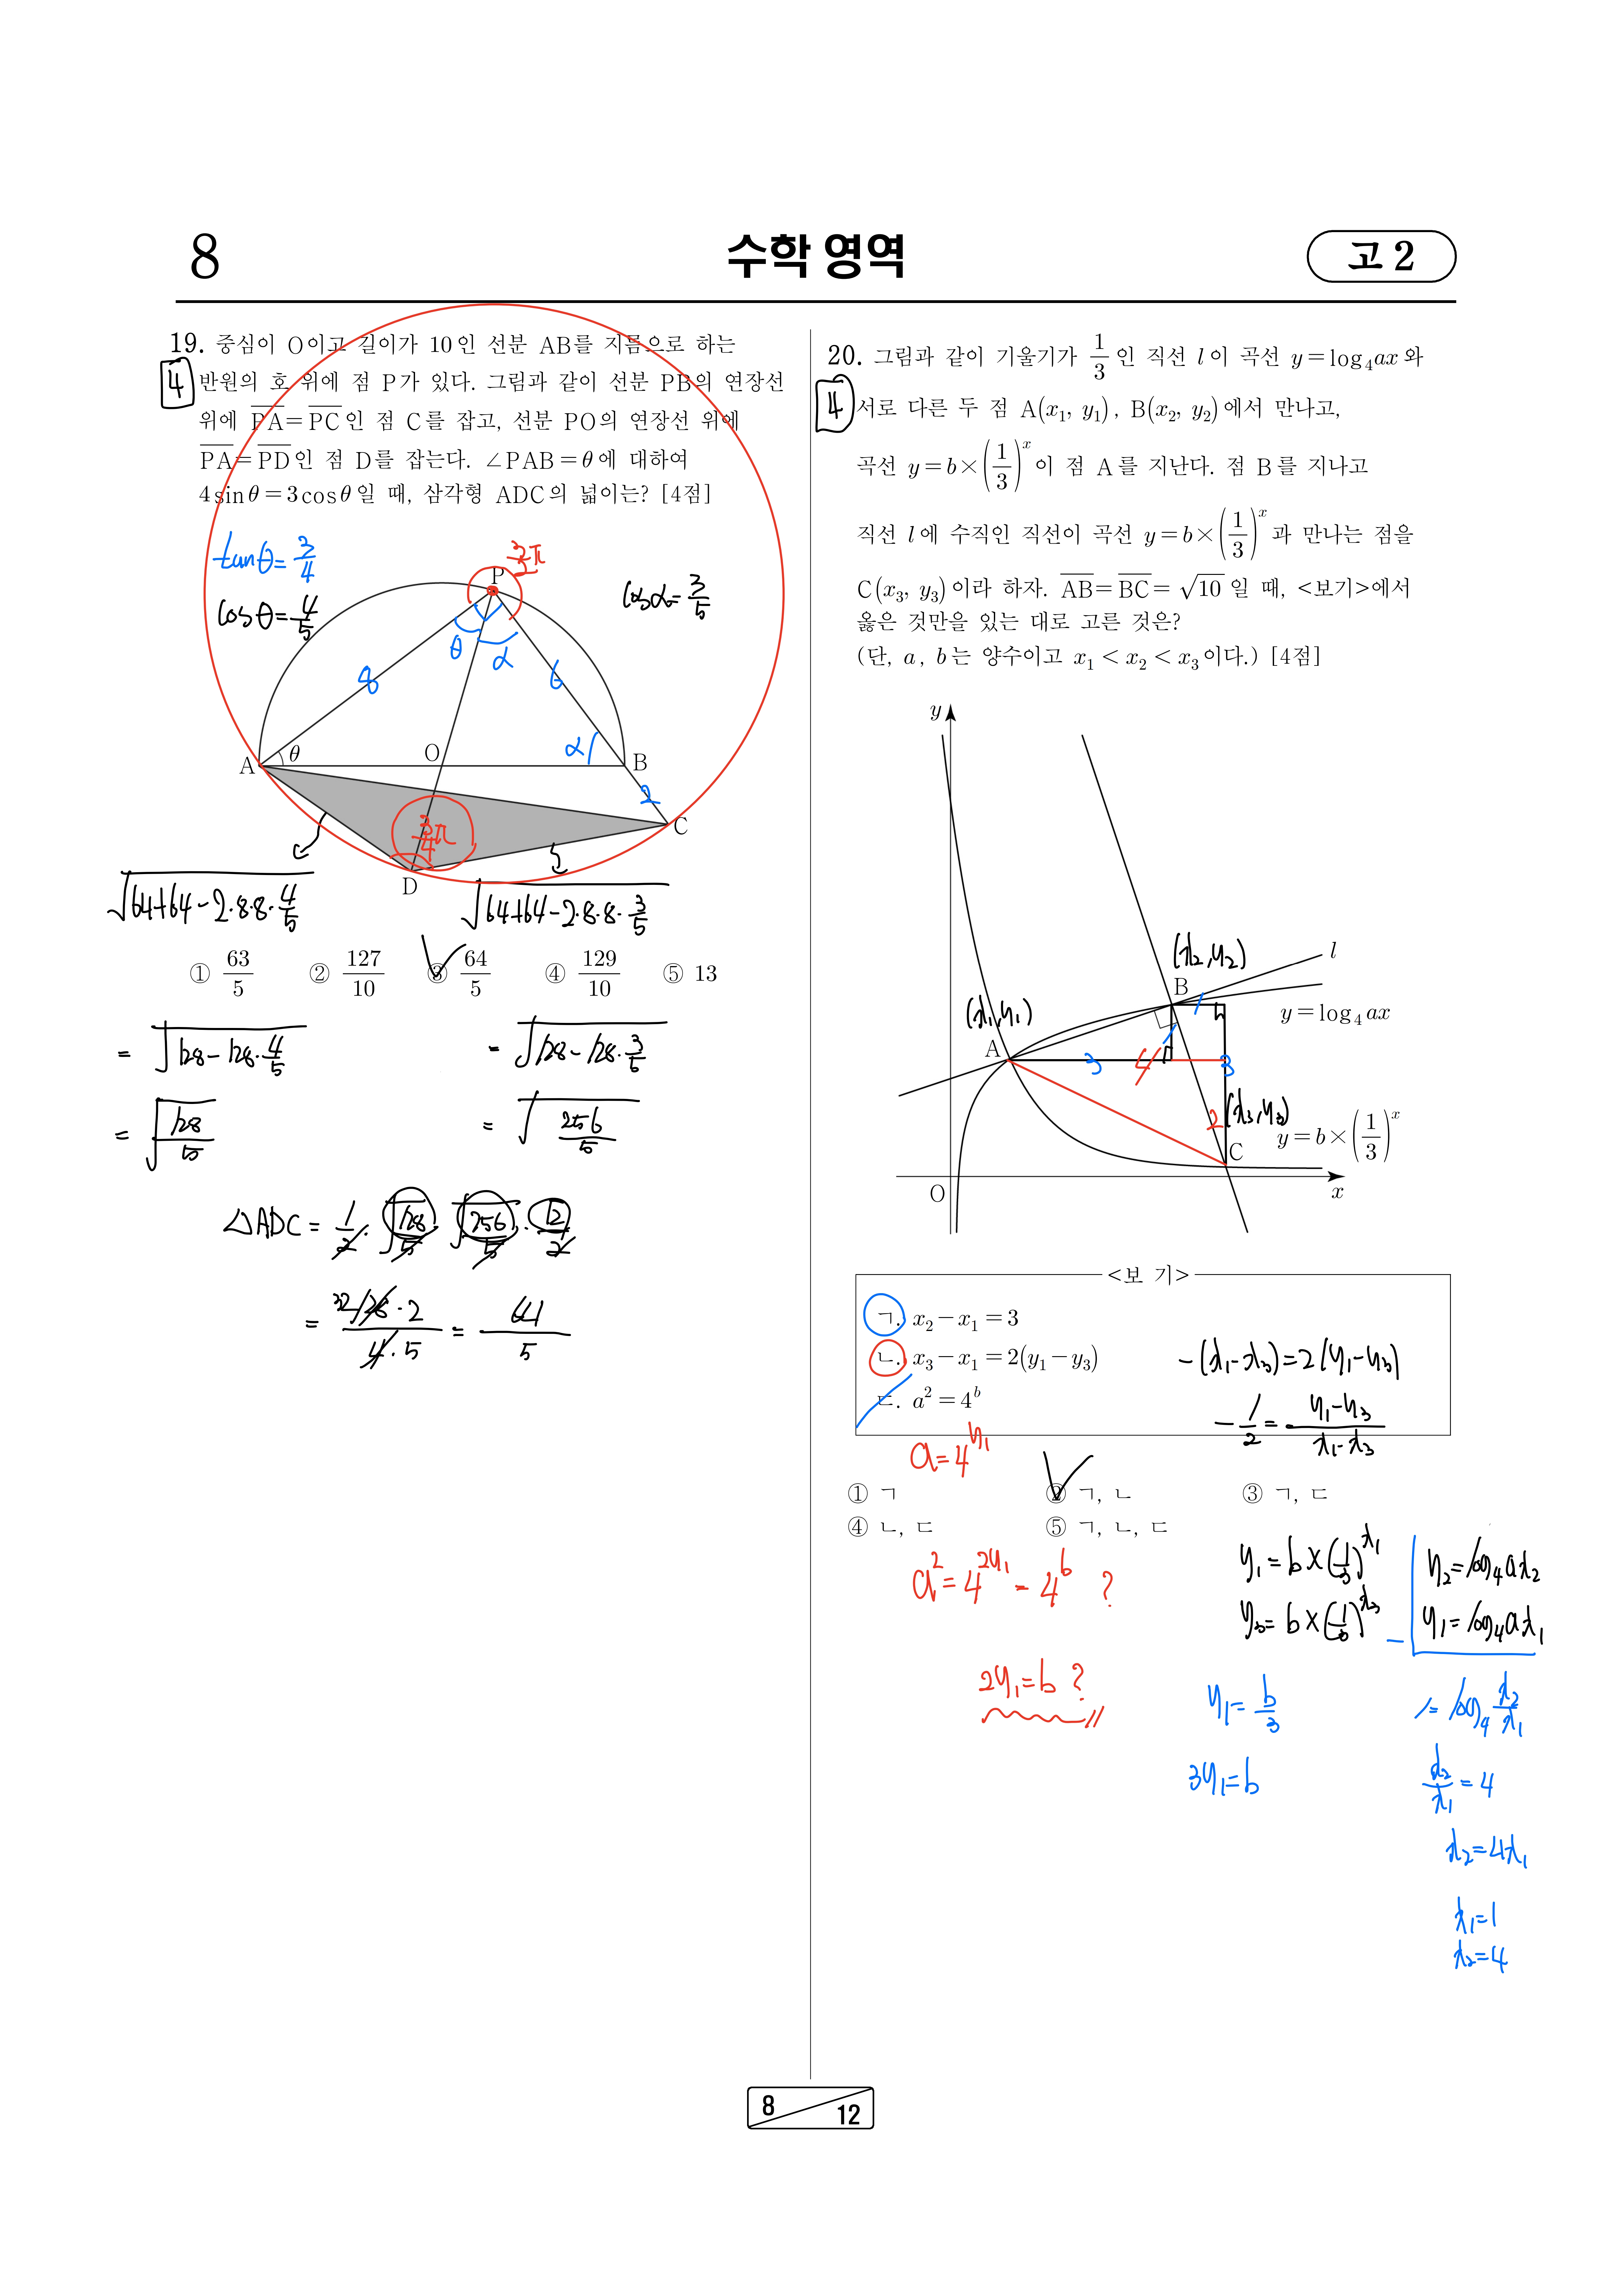 8
수학 영역
고 2
19. 중심이 O이고 길이가 10인 선분 AB를 지름으로 하는
4
반원의 호 위에 점 P가 있다. 그림과 같이 선분 PB의 연장선
위에 \overline{PA}=\overline{PC}인 점 C를 잡고, 선분 PO의 연장선 위에
\overline{PA}=\overline{PD}인 점 D를 잡는다. ∠PAB=θ에 대하여
4sinθ=3cosθ일 때, 삼각형 ADC의 넓이는? [4점]
tanθ=3/4
cosθ=4/5
cosα=3/5
3/2π
P
θ α
8 6
A θ O α B
2
3/4π
C
D
√(64+64-2·8·8·4/5)
√(64+64-2·8·8·3/5)
① 63/5 ② 127/10 ③ 64/5 ④ 129/10 ⑤ 13
= √(128-128·4/5)
= √(128-128·3/5)
= √(128/5)
= √(256/5)
△ADC = 1/2·√(128/5)·√(256/5)·√2/2
= 128·2/4·5 = 64/5
32
20. 그림과 같이 기울기가 1/3인 직선 l이 곡선 y=log₄ax와
4
서로 다른 두 점 A(x₁, y₁), B(x₂, y₂)에서 만나고,
곡선 y=b×(1/3)^x이 점 A를 지난다. 점 B를 지나고
직선 l에 수직인 직선이 곡선 y=b×(1/3)^x과 만나는 점을
C(x₃, y₃)이라 하자. \overline{AB}=\overline{BC}=√10일 때, <보기>에서
옳은 것만을 있는 대로 고른 것은?
(단, a, b는 양수이고 x₁<x₂<x₃이다.) [4점]
y
(x₂,y₂)
l
B
1
y=log₄ax
(x₁,y₁)
A
3 1 4 3
2 (x₃,y₃)
y=b×(1/3)^x
C
O
x
<보 기>
ㄱ. x₂-x₁=3
ㄴ. x₃-x₁=2(y₁-y₃)
-(x₁-x₃)=2(y₁-y₃)
ㄷ. a²=4^b
-1/2=(y₁-y₃)/(x₁-x₃)
a=4^{y₁}
① ㄱ ② ㄱ, ㄴ ③ ㄱ, ㄷ
④ ㄴ, ㄷ ⑤ ㄱ, ㄴ, ㄷ
a²=4^{2y₁}=4^b ?
2y₁=b ?
y₁=b×(1/3)^{x₁}
y₃=b×(1/3)^{x₃}
y₁=b/3
3y₁=b
y₂=log₄ax₂
- y₁=log₄ax₁
1=log₄ x₂/x₁
x₂/x₁=4
x₂=4x₁
x₁=1
x₂=4
8
12